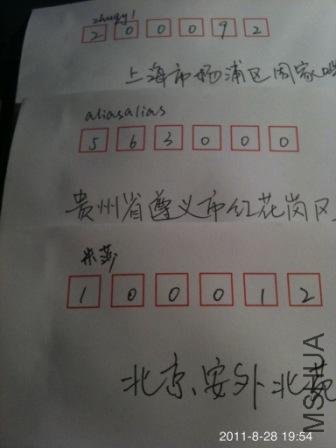 zhuqy1
200092
上海市杨浦区周家嘴
aliasalias
563000
贵州省遵义市红花岗区
米莎
100012
北京、安外北苑
MSHUA
2011-8-28 19:54